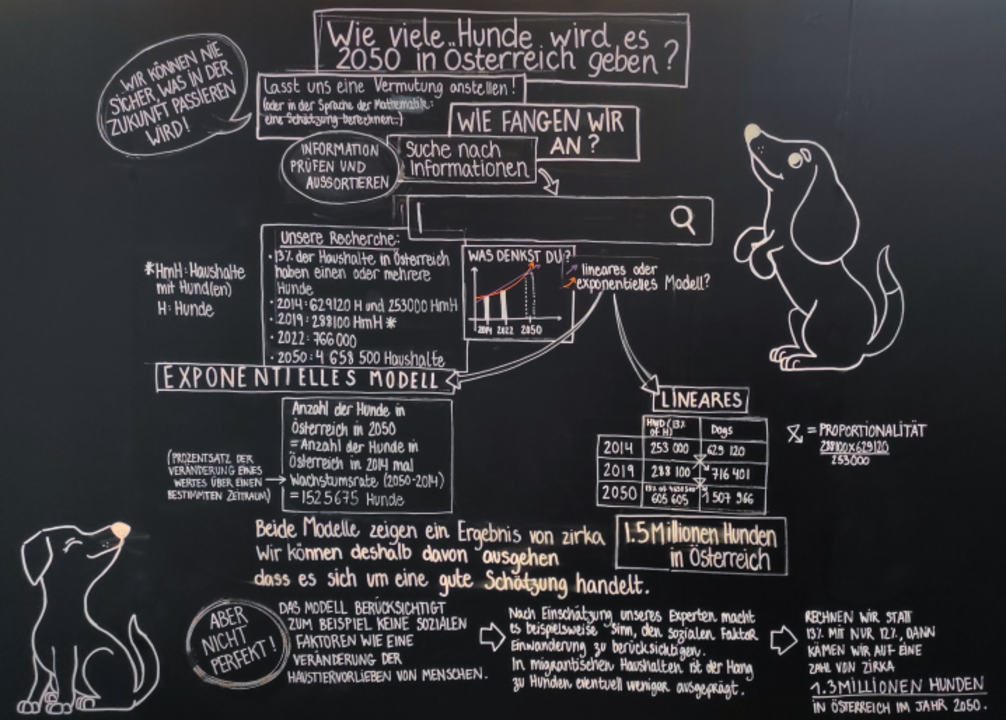 Wie viele Hunde wird es
2050 in Österreich geben?
WIR KÖNNEN NIE
SICHER WAS IN DER
ZUKUNFT PASSIEREN
WIRD!
Lasst uns eine Vermutung anstellen!
(oder in der Sprache der Mathematik:
eine Schätzung berechnen..)
WIE FANGEN WIR
AN?
INFORMATION
PRÜFEN UND
AUSSORTIEREN
Suche nach
Informationen
Unsere Recherche:
• 13% der Haushalte in Österreich
haben einen oder mehrere
Hunde
• 2014: 629120 H und 253000 HmH
• 2019: 288100 HmH *
• 2022: 766 000
• 2050: 4 658 500 Haushalte
*HmH: Haushalte
mit Hund(en)
H: Hunde
WAS DENKST DU?
2014 2022 2050
lineares oder
exponentielles Modell?
EXPONENTIELLES MODELL
Anzahl der Hunde in
Österreich in 2050
= Anzahl der Hunde in
Österreich in 2014 mal
Wachstumsrate (2050-2014)
= 1525675 Hunde
(PROZENTSATZ DER
VERÄNDERUNG EINES
WERTES ÜBER EINEN
BESTIMMTEN ZEITRAUM)
LINEARES
HWD (13% of H) Dogs
2014 253 000 629 120
2019 288 100 716 401
2050 13% of 4658500 605 605 1 507 966
= PROPORTIONALITÄT
288100x629120
253000
Beide Modelle zeigen ein Ergebnis von zirka
1.5 Millionen Hunden
in Österreich
Wir können deshalb davon ausgehen
dass es sich um eine gute Schätzung handelt.
ABER
NICHT
PERFEKT!
DAS MODELL BERÜCKSICHTIGT
ZUM BEISPIEL KEINE SOZIALEN
FAKTOREN WIE EINE
VERÄNDERUNG DER
HAUSTIERVORLIEBEN VON MENSCHEN.
Nach Einschätzung unseres Experten macht
es beispielsweise Sinn, den sozialen Faktor
Einwanderung zu berücksichtigen.
In migrantischen Haushalten ist der Hang
zu Hunden eventuell weniger ausgeprägt.
RECHNEN WIR STATT
13% MIT NUR 12%, DANN
KÄMEN WIR AUF EINE
ZAHL VON ZIRKA
1.3 MILLIONEN HUNDEN
IN ÖSTERREICH IM JAHR 2050.